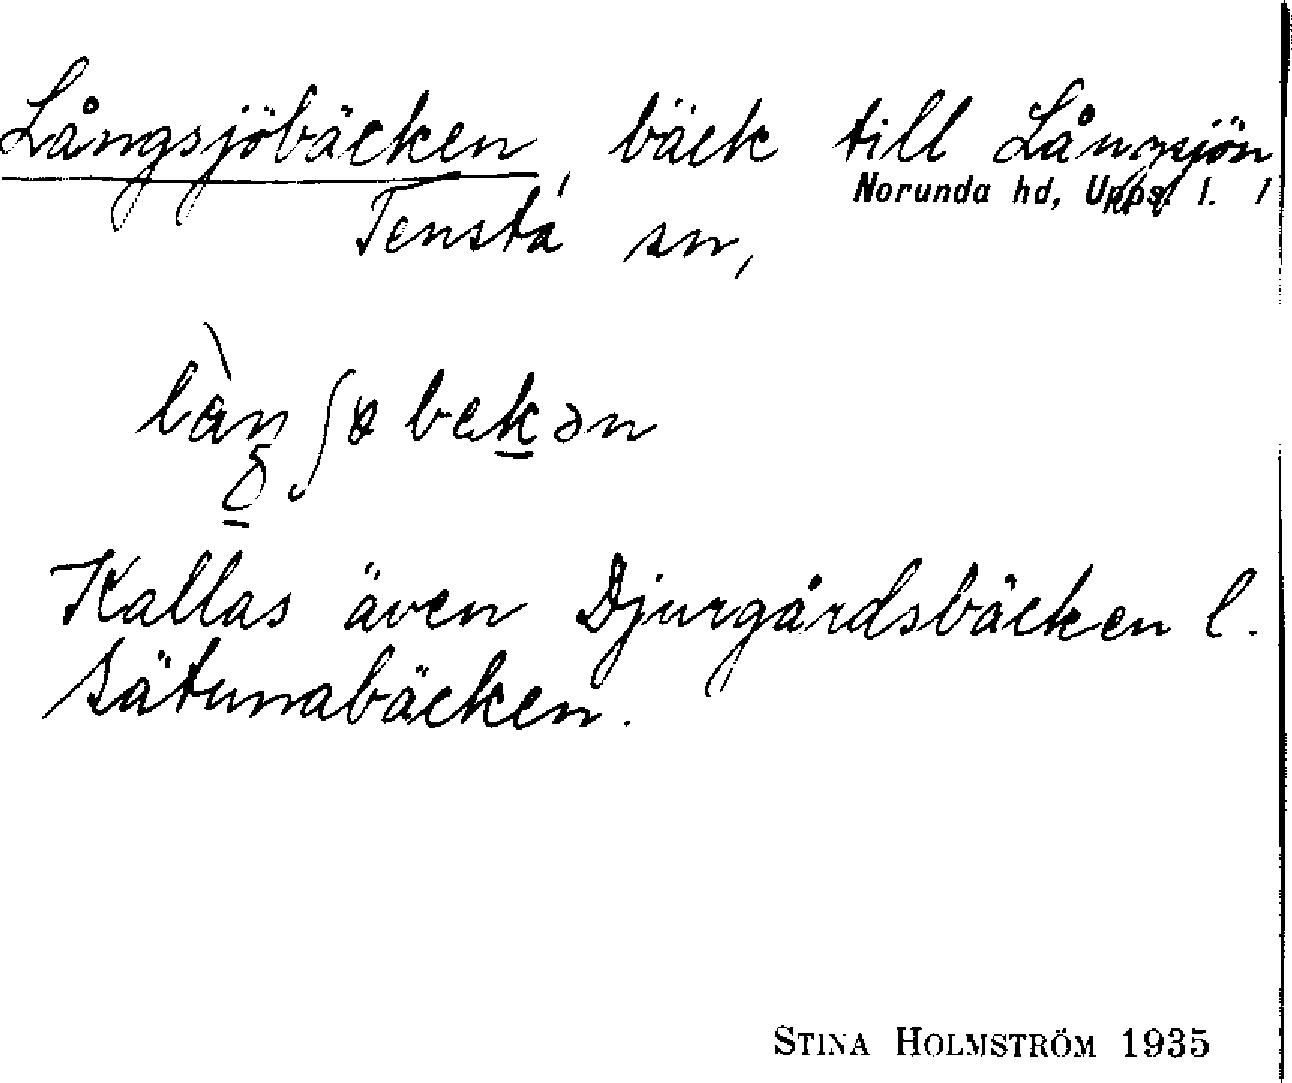 Långsjöbäcken, bäck till Långsjön
Norunda hd, Upps. l.
Tensta sn,
Kallas även Djurgårdsbäcken l.
Sätunabäcken.
STINA HOLMSTRÖM 1935